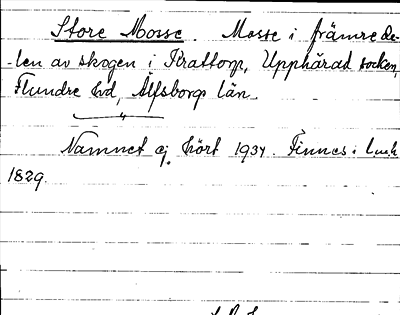 Store Mosse. Mosse i främre de-
-len av skogen i Krattorp, Upphärad socken,
Flundre hd, Älfsborgs län.
Namnet ej hört 1934. Finnes i
1829.